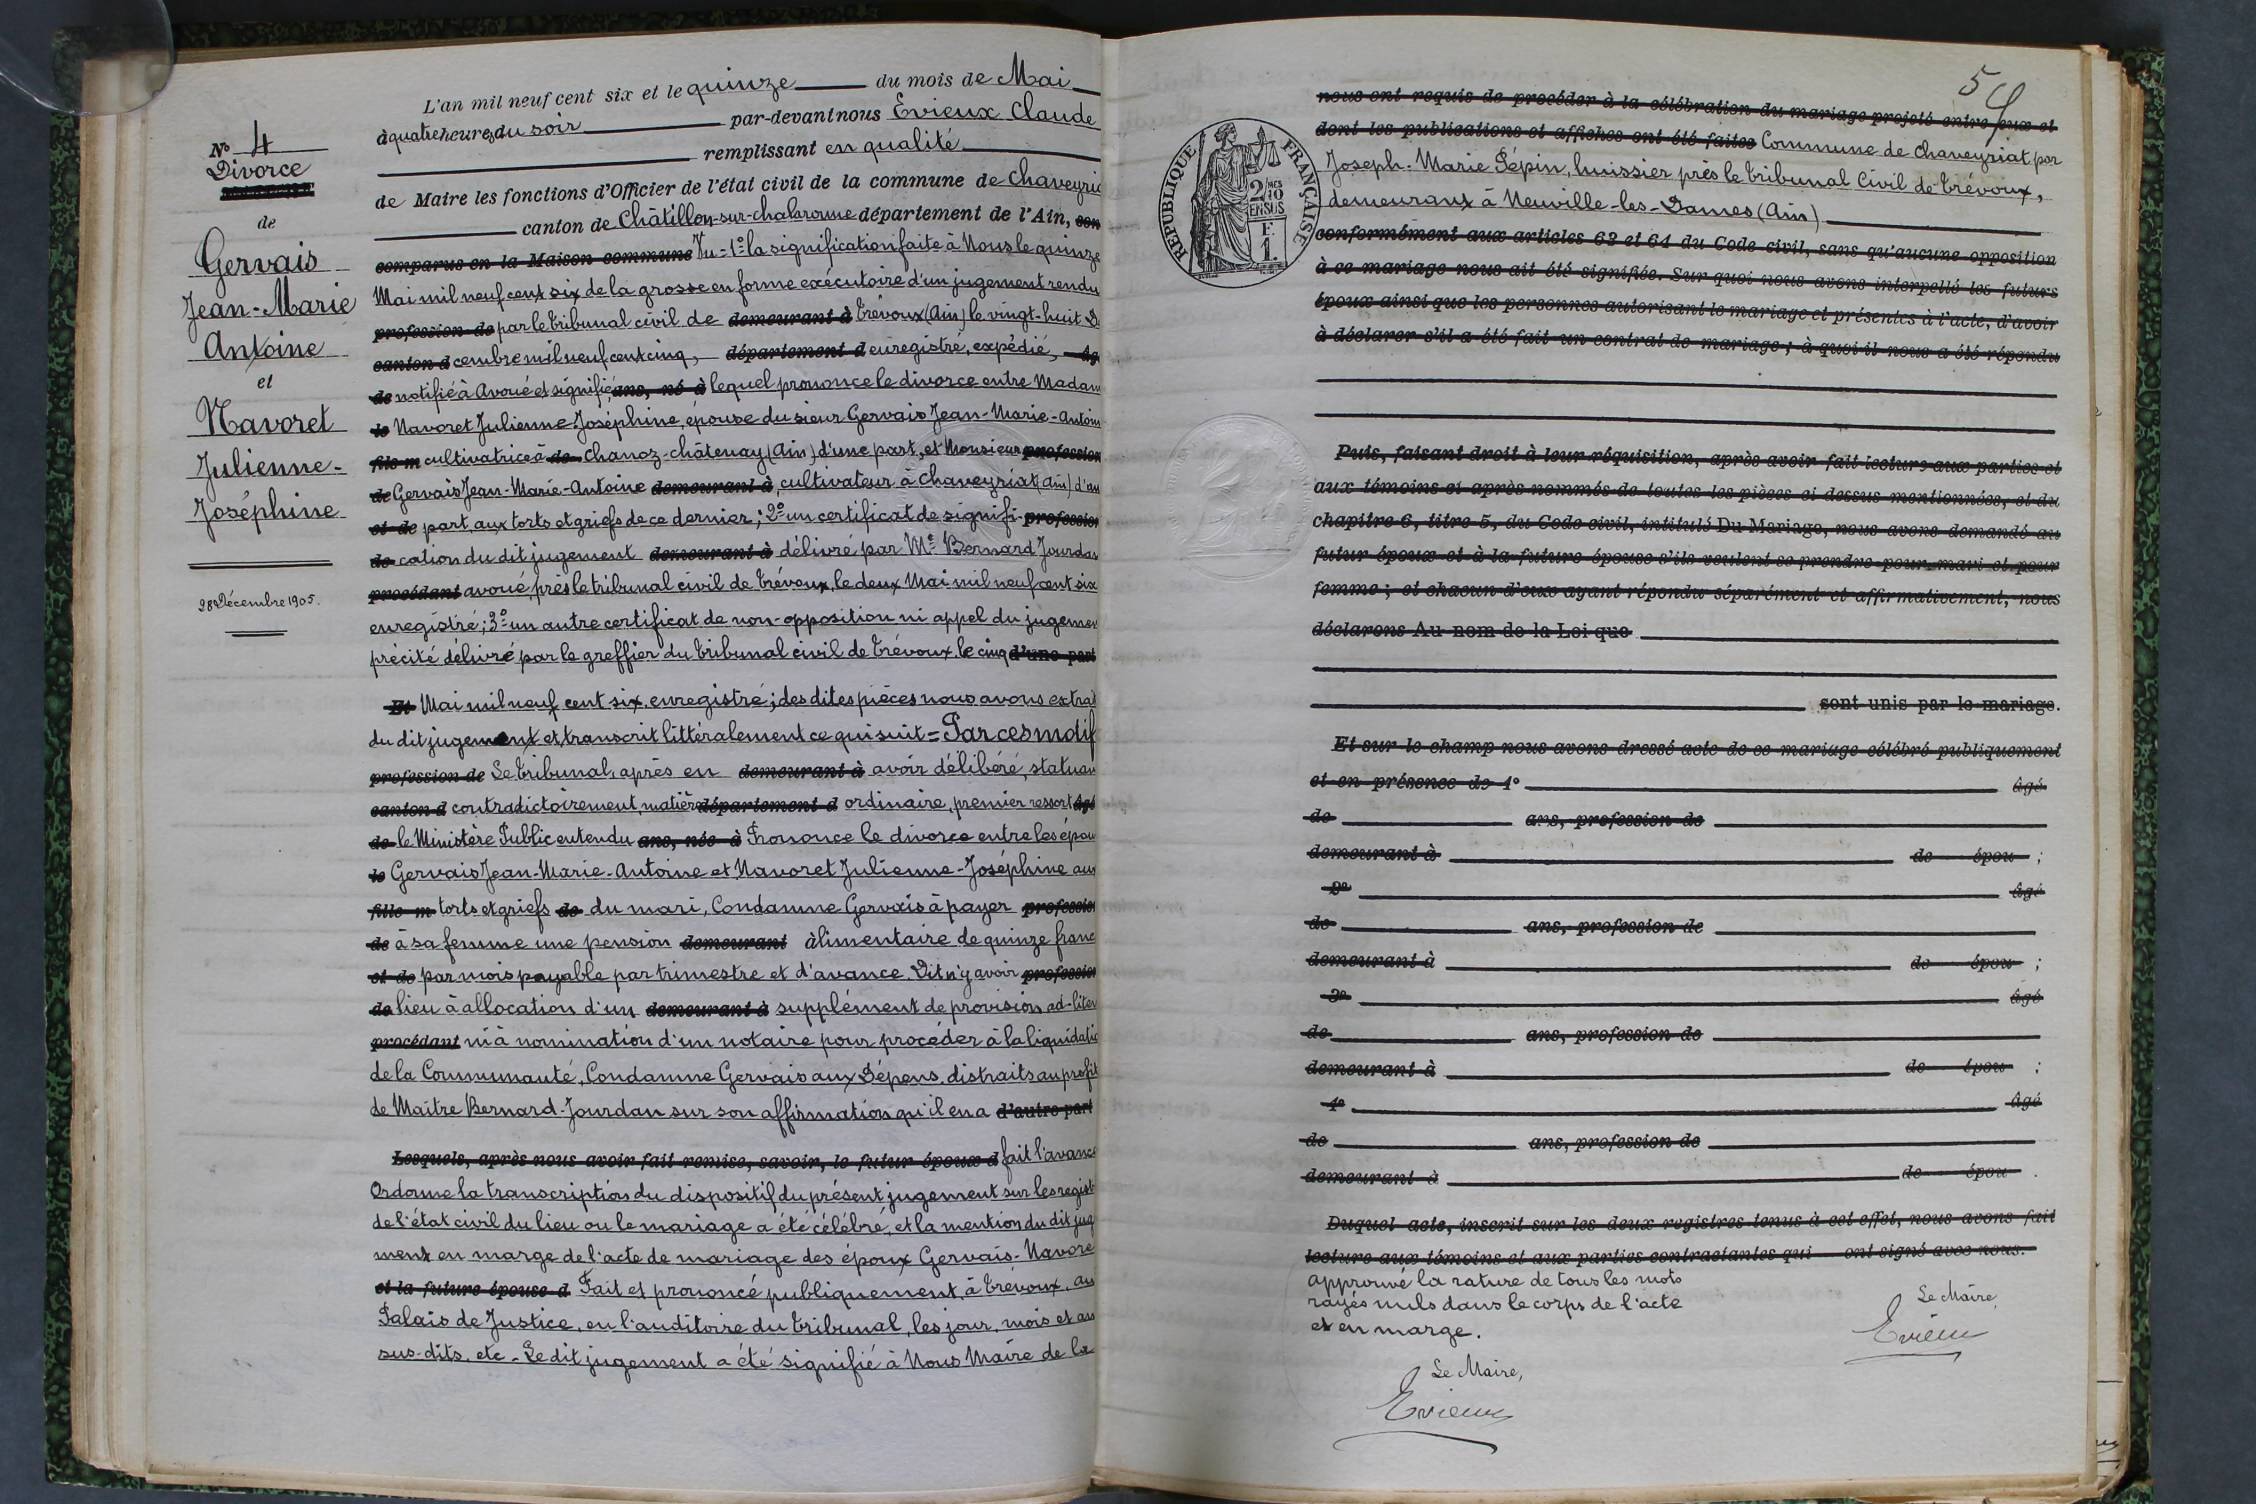 L'an mil neuf cent six et le quinze du mois de Mai
à quatre heures du soir par-devant nous Evieux Claude
remplissant en qualité
de Maire les fonctions d'Officier de l'état civil de la commune de Chaveyria
canton de Châtillon-sur-chalaronne département de l'Ain, com
comparus en la Maison commune Vu = 1º la signification faite à Nous le quinze
Mai mil neuf cent six de la grosse en forme exécutoire d'un jugement rendu
profession de par le tribunal civil de demeurant à Trévoux (Ain) le vingt-huit D
canton d cembre mil neuf cent cinq, département d enregistré, expédié, âg
de notifié à Avoué et signifié ans, né à lequel prononce le divorce entre Madam
le Navoret Julienne-Joséphine, épouse du sieur Gervais Jean-Marie-Antoin
fils m cultivatrice à de Chanoz-châtenay (Ain) d'une part, et Monsieur profession
de Gervais Jean-Marie-Antoine demeurant à, cultivateur à Chaveyriat (Ain) d'au
et de part, aux torts et griefs de ce dernier; 2º un certificat de signifi- profession
de cation du dit jugement demeurant à délivré par Me Bernard Jourdan
procédant avoué, près le tribunal civil de Trévoux, le deux Mai mil neuf cent six
enregistré; 3º un autre certificat de non-opposition ni appel du jugemen
précité délivré par le greffier du Tribunal civil de Trévoux, le cinq d'une part
Et Mai mil neuf cent six, enregistré; des dites pièces nous avons extrai
du dit jugement et transcrit littéralement ce qui suit = Par ces motif
profession de Le tribunal, après en demeurant à avoir délibéré, statuan
canton d contradictoirement, matière département d ordinaire, premier ressort âgé
de le Ministère Public entendu ans, née à Prononce le divorce entre les épou
le Gervais Jean-Marie-Antoine et Navoret Julienne-Joséphine aux
fille m torts et griefs de du mari, Condamne Gervais à payer profession
de à sa femme une pension demeurant àlimentaire de quinze franc
et de par mois payable par trimestre et d'avance. Dit n'y avoir profession
de lieu à allocation d'un demeurant à supplément de provision ad-litem
procédant ni à nomination d'un notaire pour procéder à la liquidatio
de la Communauté, Condamne Gervais aux Dépens, distraits au profit
de Maître Bernard-Jourdan sur son affirmation qu'il en a d'autre part
Lesquels, après nous avoir fait remise, savoir, le futur époux d fait l'avance
Ordonne la transcription du dispositif du présent jugement sur les regist
de l'état civil du lieu ou le mariage a été célébré, et la mention du dit jug
ment en marge de l'acte de mariage des époux Gervais-Navore
et la future épouse d Fait et prononcé publiquement, à Trévoux, au
Palais de Justice, en l'auditoire du tribunal, les jour, mois et an
sus-dits, etc. Le dit jugement a été signifié à Nous Maire de la
Nº 4
Divorce
de
Gervais
Jean-Marie
Antoine
et
Navoret
Julienne-
Joséphine
28 Décembre 1905.
5
nous ont requis de procéder à la célébration du mariage projeté entre eux et
dont les publications et affiches ont été faites Commune de Chaveyriat par
Joseph-Marie Pépin, huissier près le tribunal Civil de Trévoux,
demeurant à Neuville-les-Dames (Ain)
conformément aux articles 63 et 64 du Code civil, sans qu'aucune opposition
à ce mariage nous ait été signifiée. Sur quoi nous avons interpellé les futurs
époux ainsi que les personnes autorisant le mariage et présentes à l'acte, d'avoir
à déclarer s'il a été fait un contrat de mariage; à quoi il nous a été répondu
RÉPUBLIQUE FRANÇAISE
2/10 EN SUS
F.
1.
Puis, faisant droit à leur réquisition, après avoir fait lecture aux parties et
aux témoins ci après nommés de toutes les pièces ci dessus mentionnées, et du
chapitre 6, titre 5, du Code civil, intitulé Du Mariage, nous avons demandé au
futur époux et à la future épouse s'ils veulent se prendre pour mari et pour
femme; et chacun d'eux ayant répondu séparément et affirmativement, nous
déclarons Au nom de la Loi que
sont unis par le mariage.
Et sur le champ nous avons dressé acte de ce mariage célébré publiquement
et en présence de 1º âgé
de ans, profession de
demeurant à de épou ;
2º âgé
de ans, profession de
demeurant à de épou ;
3º âgé
de ans, profession de
demeurant à de épou ;
4º âgé
de ans, profession de
demeurant à de épou .
Duquel acte, inscrit sur les deux registres tenus à cet effet, nous avons fait
lecture aux témoins et aux parties contractantes qui ont signé avec nous.
approuvé la rature de tous les mots
rayés nuls dans le corps de l'acte
et en marge.
Le Maire,
Evieux
Le Maire,
Evieux